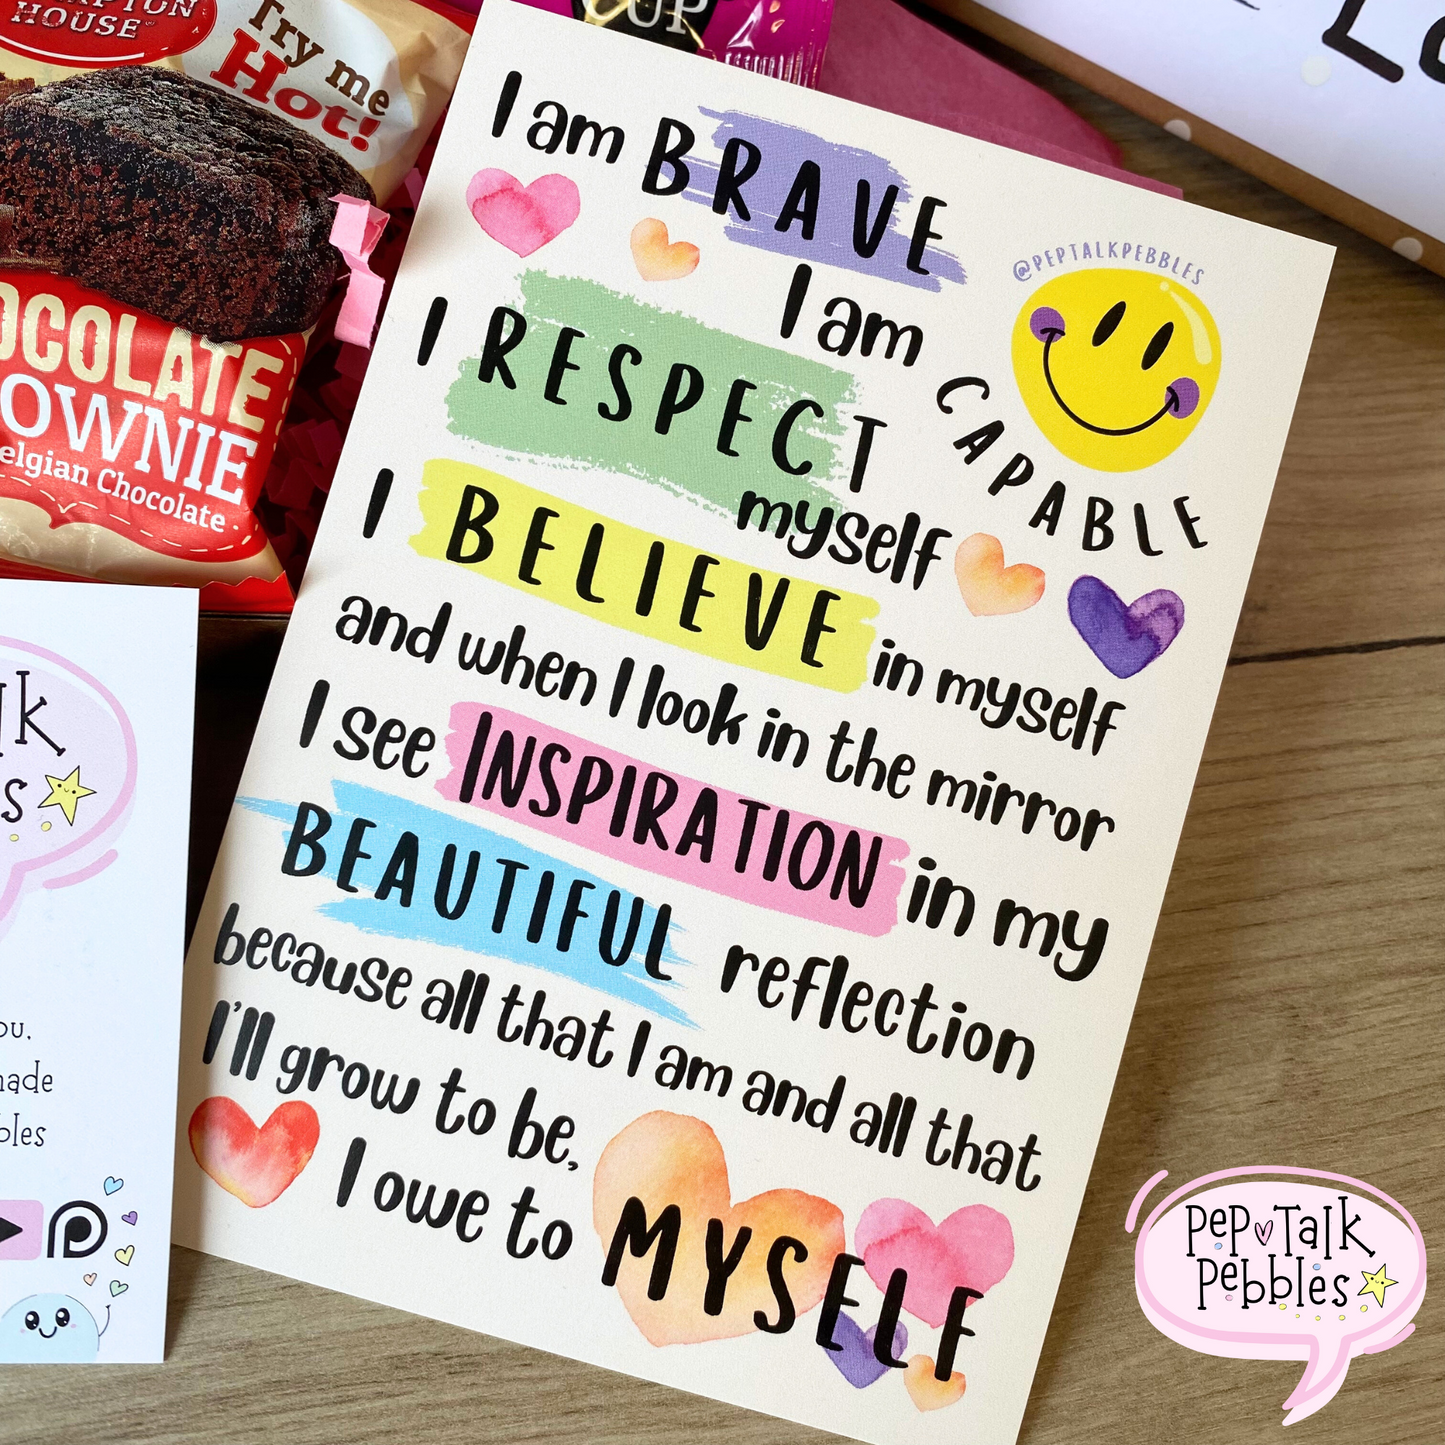 HOUSE
Try me
Hot!
CHOCOLATE
BROWNIE
Belgian Chocolate
UP
I am BRAVE
@PEPTALKPEBBLES
I am CAPABLE
I RESPECT
myself
I BELIEVE in myself
and when I look in the mirror
I see INSPIRATION in my
BEAUTIFUL reflection
because all that I am and all that
I'll grow to be,
I owe to MYSELF
PEP TALK
PEBBLES